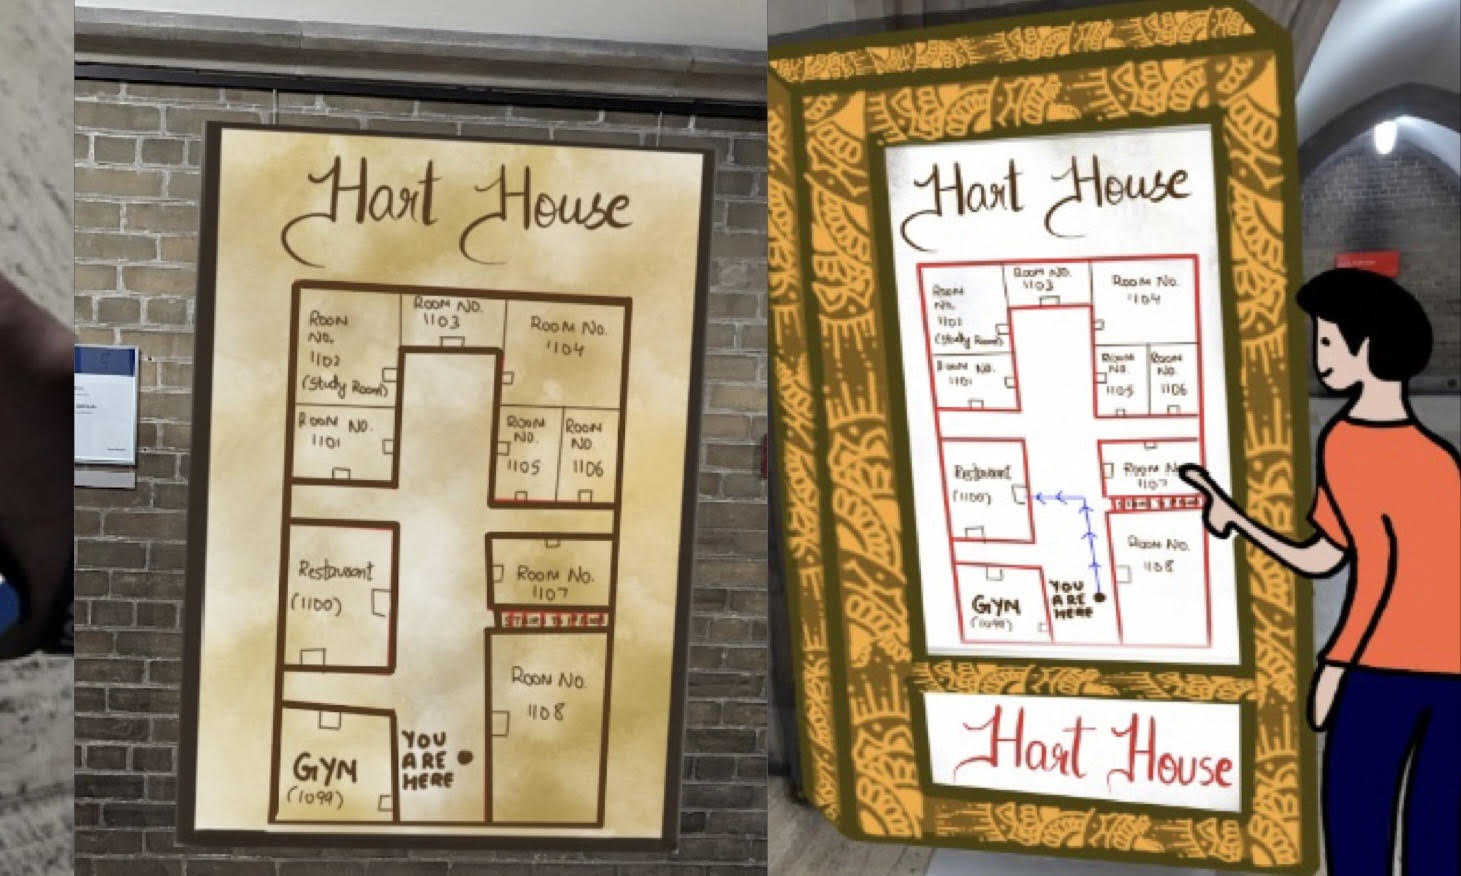 Hart House
ROOM NO.
1103
ROOM
NO.
1102
(Study Room)
ROOM NO.
1104
ROOM NO.
1101
ROOM
NO.
1105
ROOM
NO.
1106
Restaurant
(1100)
ROOM NO.
1107
ROOM NO.
1108
GYM
(1099)
YOU
ARE
HERE
Hart House
ROOM NO.
1103
ROOM
NO.
1102
(Study Room)
ROOM NO.
1104
ROOM NO.
1101
ROOM
NO.
1105
ROOM
NO.
1106
Restaurant
(1100)
ROOM
1107
ROOM NO.
1108
GYM
(1099)
YOU
ARE
HERE
Hart House